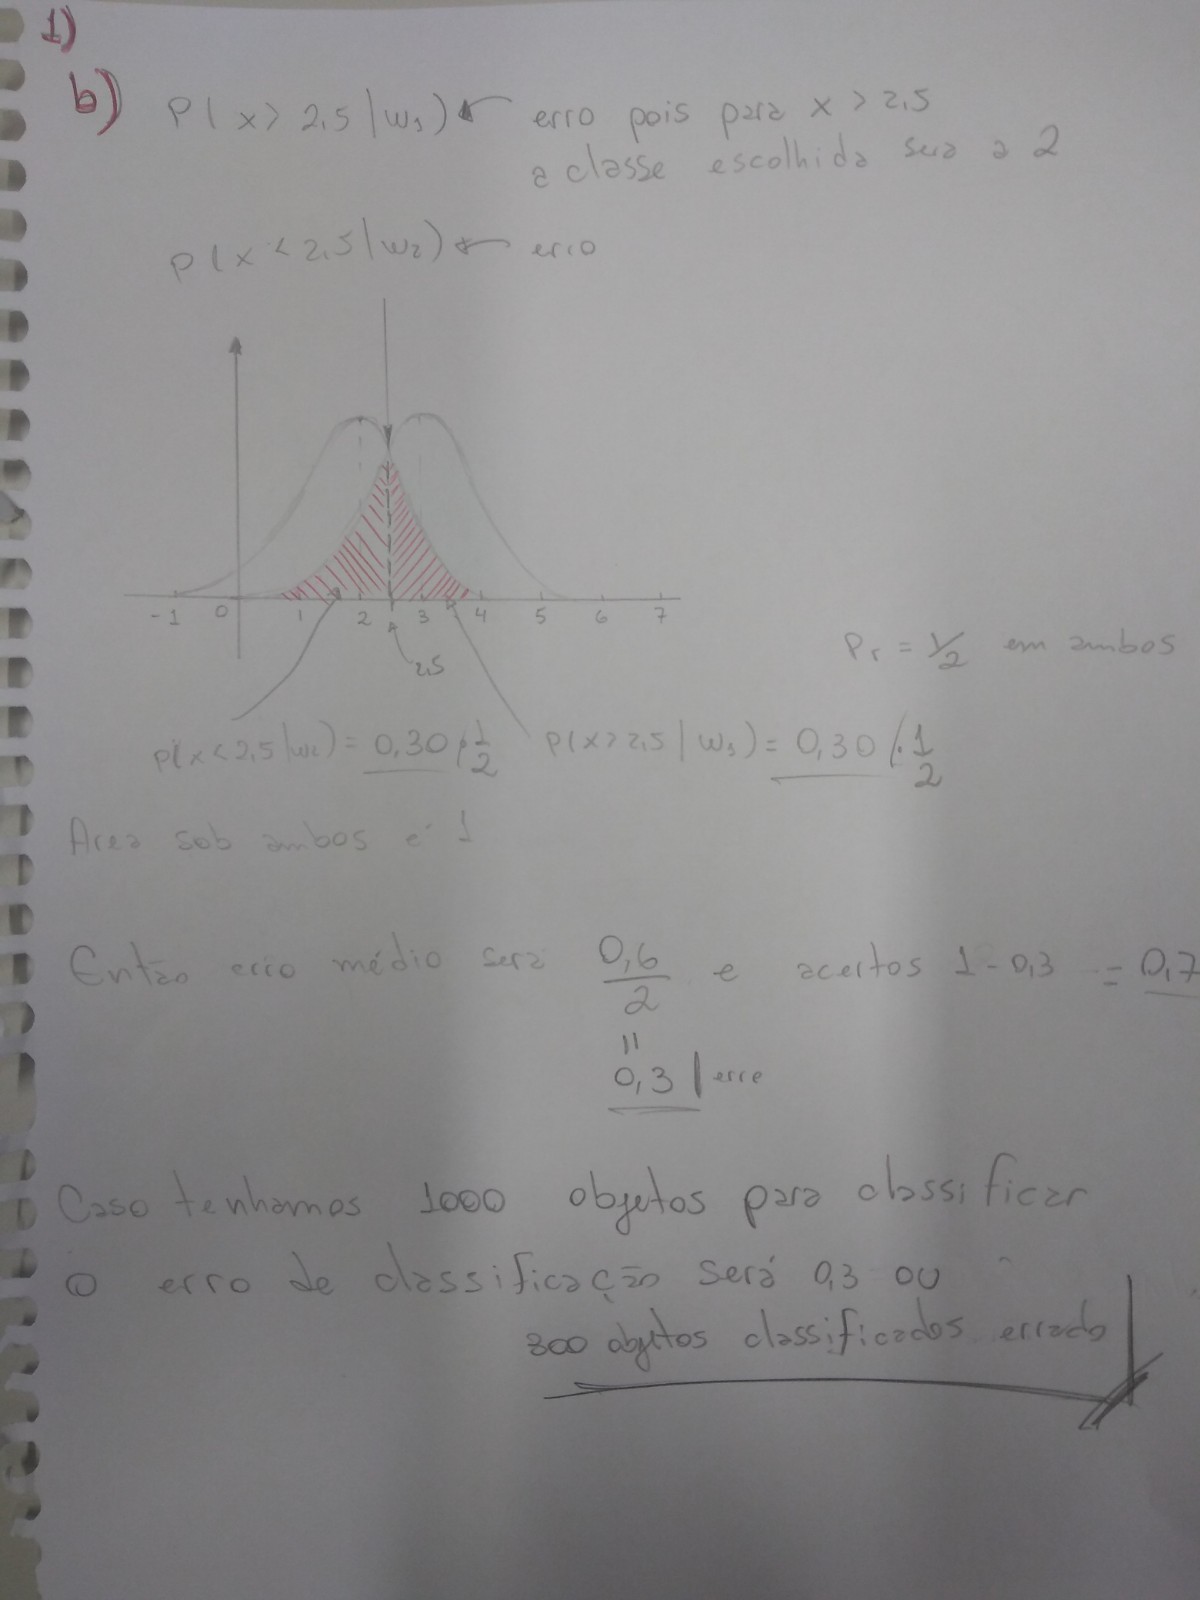 1)
b) P(x > 2,5 | w1) ← erro pois para x > 2,5
a classe escolhida sera a 2
P(x < 2,5 | w2) ← erro
-1 0 1 2 3 4 5 6 7
2,5
Pr = 1/2 em ambos
P(x < 2,5 | w2) = 0,30 · 1/2 P(x > 2,5 | w1) = 0,30 · 1/2
Area sob ambos é 1
Então erro médio sera 0,6/2 e acertos 1 - 0,3 = 0,7
=
0,3 | erro
Caso tenhamos 1000 objetos para classificar
o erro de classificação será 0,3 ou
300 objetos classificados errado